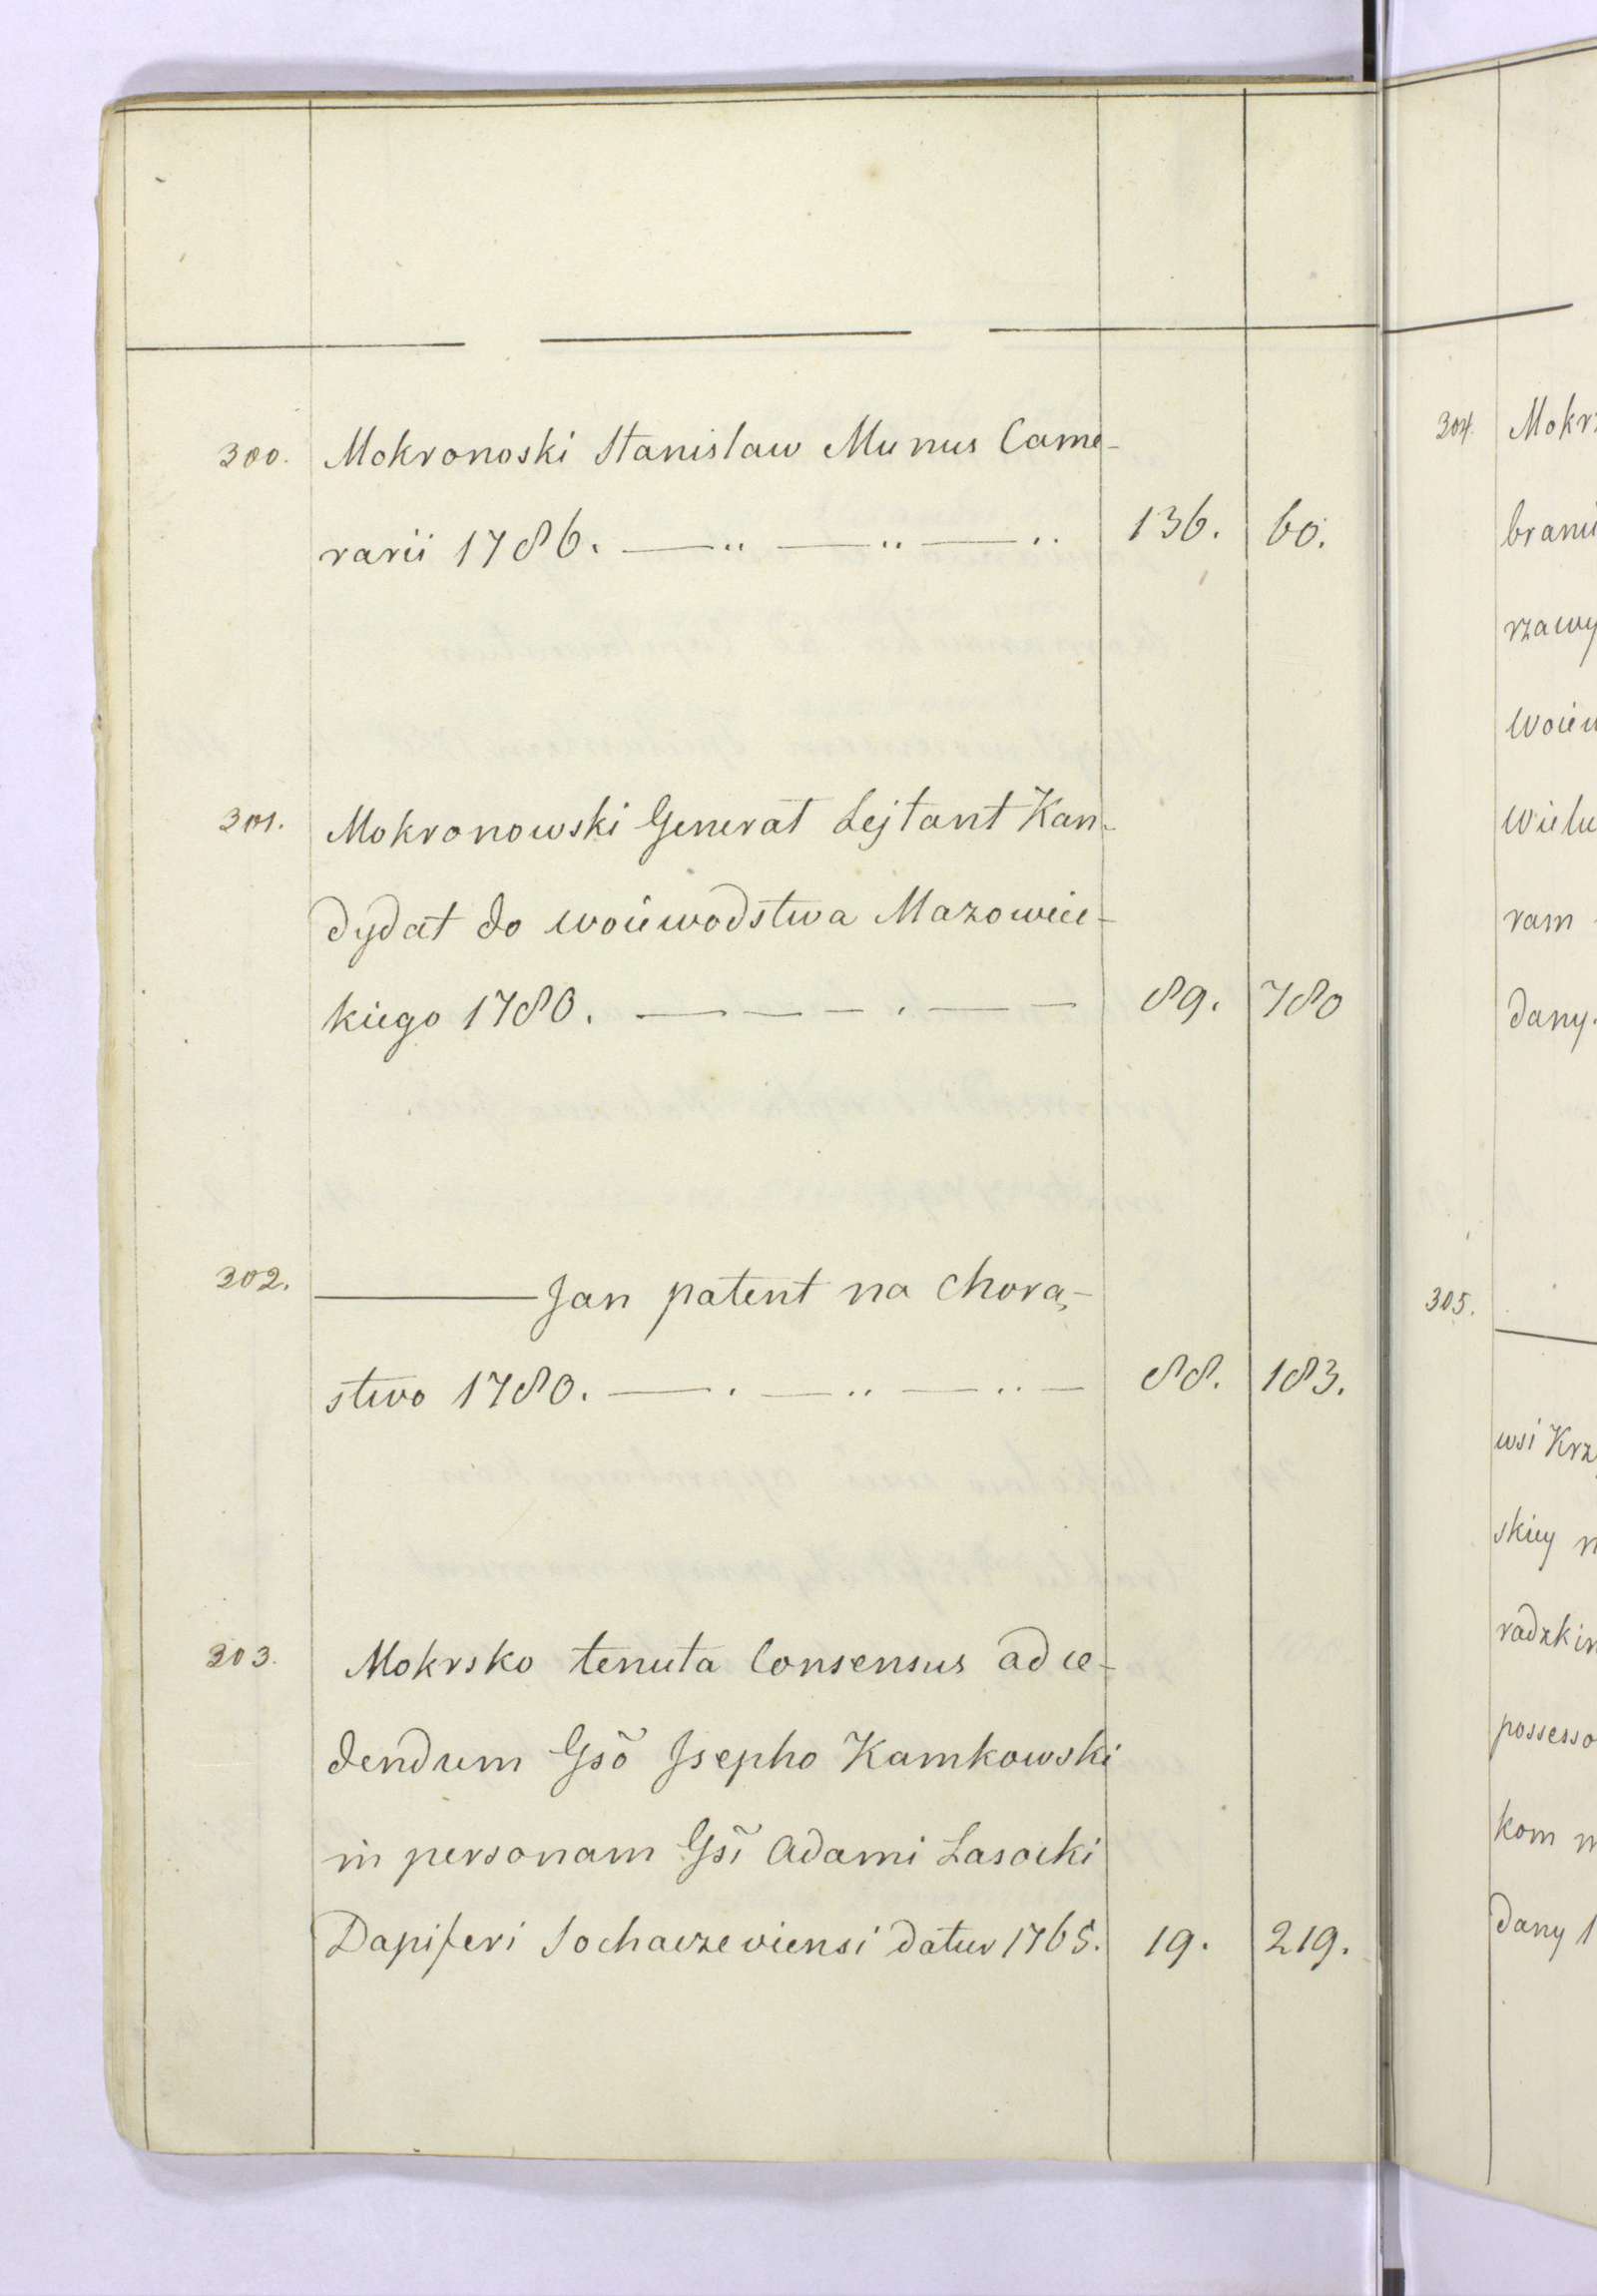 300. Mokronoski Stanislaw Munus Came-
rarii 1786. 136. 60.
301. Mokronowski Generał Lejtant Kan-
dydat do woiewodstwa Mazowiec-
kiego 1780. 89. 780
302. ——— Jan patent na chorą-
stwo 1780. 88. 183.
303. Mokrsko tenuta Consensus ad ce-
dendum Gsõ Jsepho Kamkowski
in personam Gsĩ Adami Lasocki
Dapiferi Sochaczeviensi datur 1765. 19. 219.
304. Mokrz
brani
rzawy
woiew
wielu
ram
dany.
305.
wsi Krz
skiey n
radzkim
possesso
kom n
dany 1